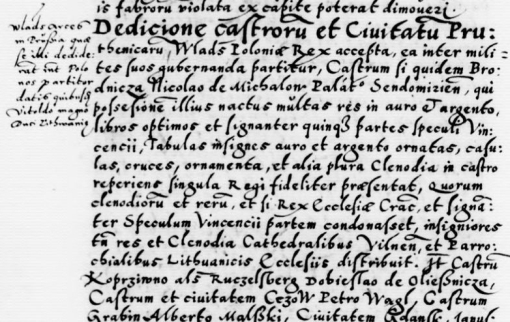 is fabroru violata ex capite poterat dimoveri.
Dedicione castroru et Civitatu Pru:
thenicaru, Wlads Poloniæ Rex accepta, ea inter mili:
tes suos gubernanda partitur, Castrum si quidem Bro:
dnicza Nicolao de Michalow Palat. Sendomizien, qui
possesione illius nactus multas res in auro & argento,
libros optimos et signanter quinq partes speculi Vin:
cencii, Tabulas insignes auro et argento ornatas, casu:
las, cruces, ornamenta, et alia plura Clenodia in castro
reperiens singula Regi fideliter præsentat, Quorum
clenodioru et reru, et si Rex Ecclesiæ Crac, et signa:
ter Speculum Vincencii partem condonasset, insigniores
tn res et Clenodia Cathedralibus Vilnen, et Parro:
chialibus Lithuanicis Ecclesiis distribuit. It Castru
Koprziwno als Ruczelsberg Dobieslao de Oliesznicza,
Castrum et civitatem Cezow Petro Wagl, Castrum
Grabin Alberto Malski, Civitatem Gdansk, Janus:
Wlads arces
in Prussia quæ
se illi dedide:
rat int Pala
nos partitur
datis quibusd
Vitoldo magno
Duci Lithwanie